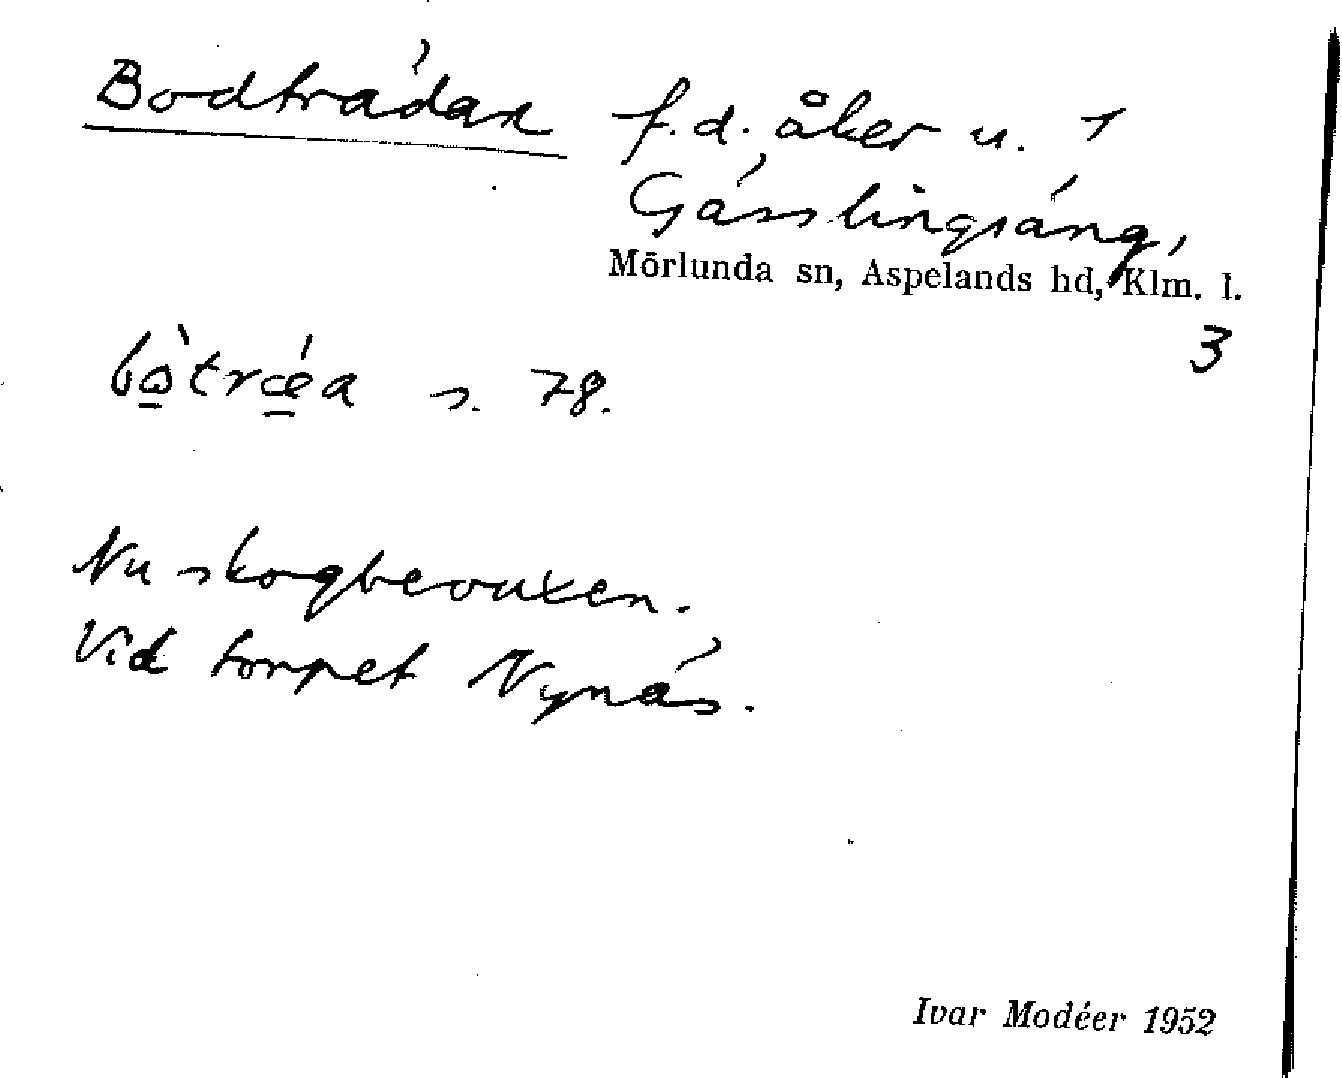 Bodträdan f.d. åker u. 1
Gässlingsäng,
Mörlunda sn, Aspelands hd, Klm. l.
3
bo̠̊̀trǽ̠a s. 78.
Nu skogbevuxen.
Vid torpet Nynäs.
Ivar Modéer 1952